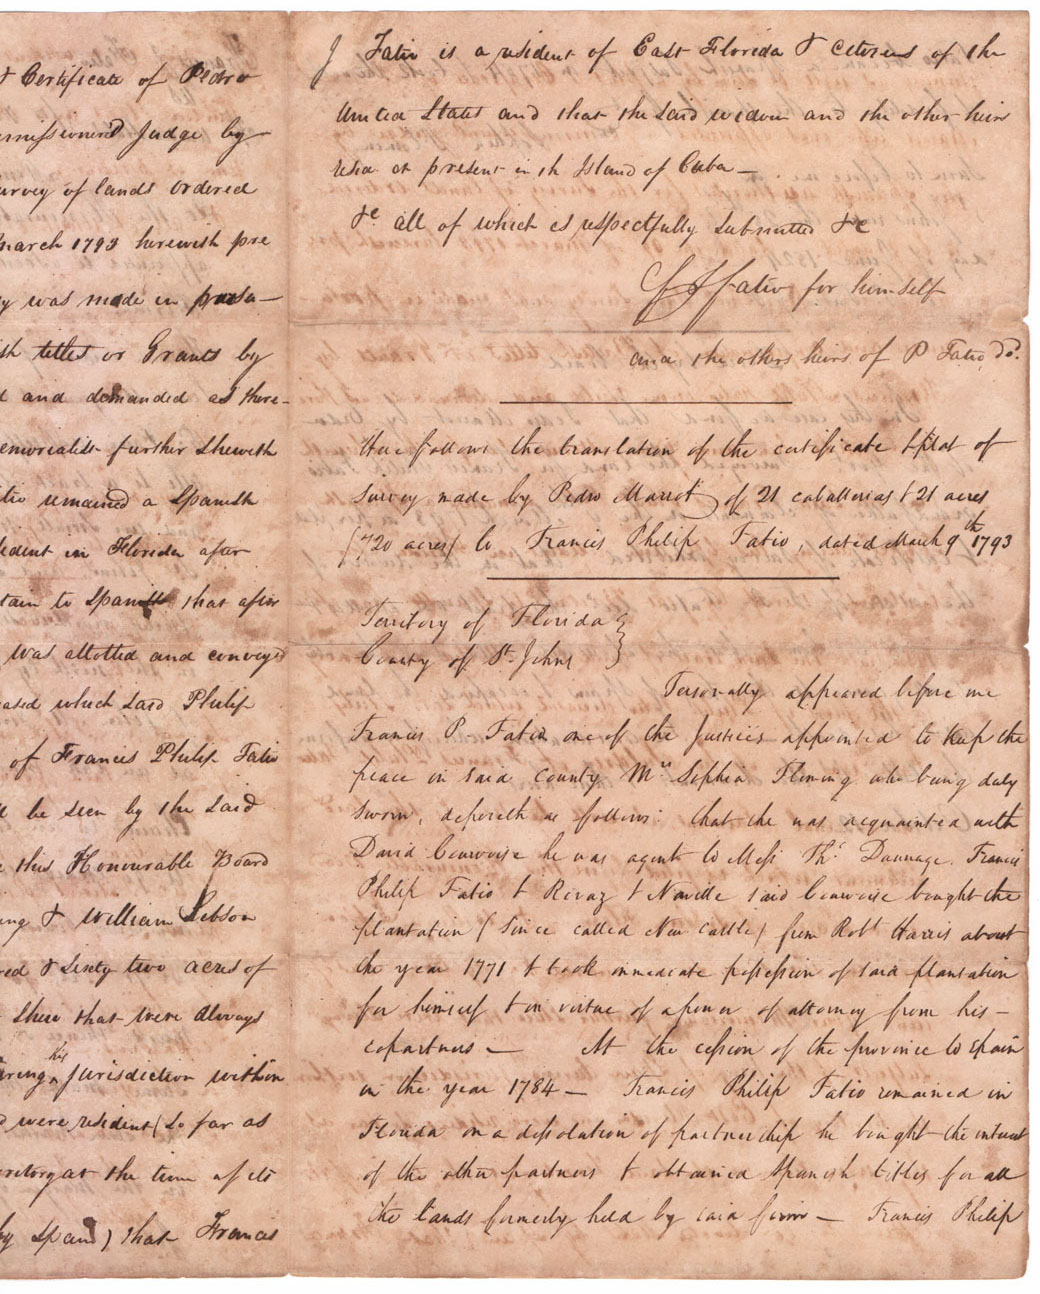 & Certificate of Pedro
Judge by
survey of lands ordered
March 1793 herewith pre
was made in pursu-
titles or Grants by
and demanded as there-
memorialist further sheweth
remained a Spanish
resident in Florida after
to Spanish that after
was allotted and conveyed
which said Philip
of Francis Philip Fatio
be seen by the said
this Honourable Board
& William Gibson
& Sixty two acres of
shew that were always
his
jurisdiction within
were resident (So far as
territory at the time of its
by Spain) that Francis
J Fatio is a resident of East Florida & Citizens of the
United States and that the said widow and the other heirs
reside at present in th Island of Cuba —
&c all of which is respectfully submitted &c
F J Fatio for himself
and the others heirs of P Fatio, do.
Here follows the translation of the certificate & plat of
survey made by Pedro Marrot of 21 caballerias & 21 acres
(720 acres) to Francis Philip Fatio, dated March 9th 1793
Territory of Florida }
County of St. Johns }
Personally appeared before me
Francis P. Fatio one of the Justices appointed to keep the
peace in said County Mrs Sophia Fleming who being duly
sworn, deposeth as follows: that she was acquainted with
David Courvoise he was agent to Mess Ths Dunnage, Francis
Philip Fatio & Rivaz & Neville said Courvoise bought the
plantation (since called New Castle) from Robt Harris about
the year 1771 & took immediate possession of said plantation
for himself & in virtue of a power of attorney from his —
copartners — At the cession of the province to Spain
in the year 1784 — Francis Philip Fatio remained in
Florida on a dissolation of partnership he bought the interest
of the other partners & obtained Spanish titles for all
the lands formerly held by said firm — Francis Philip